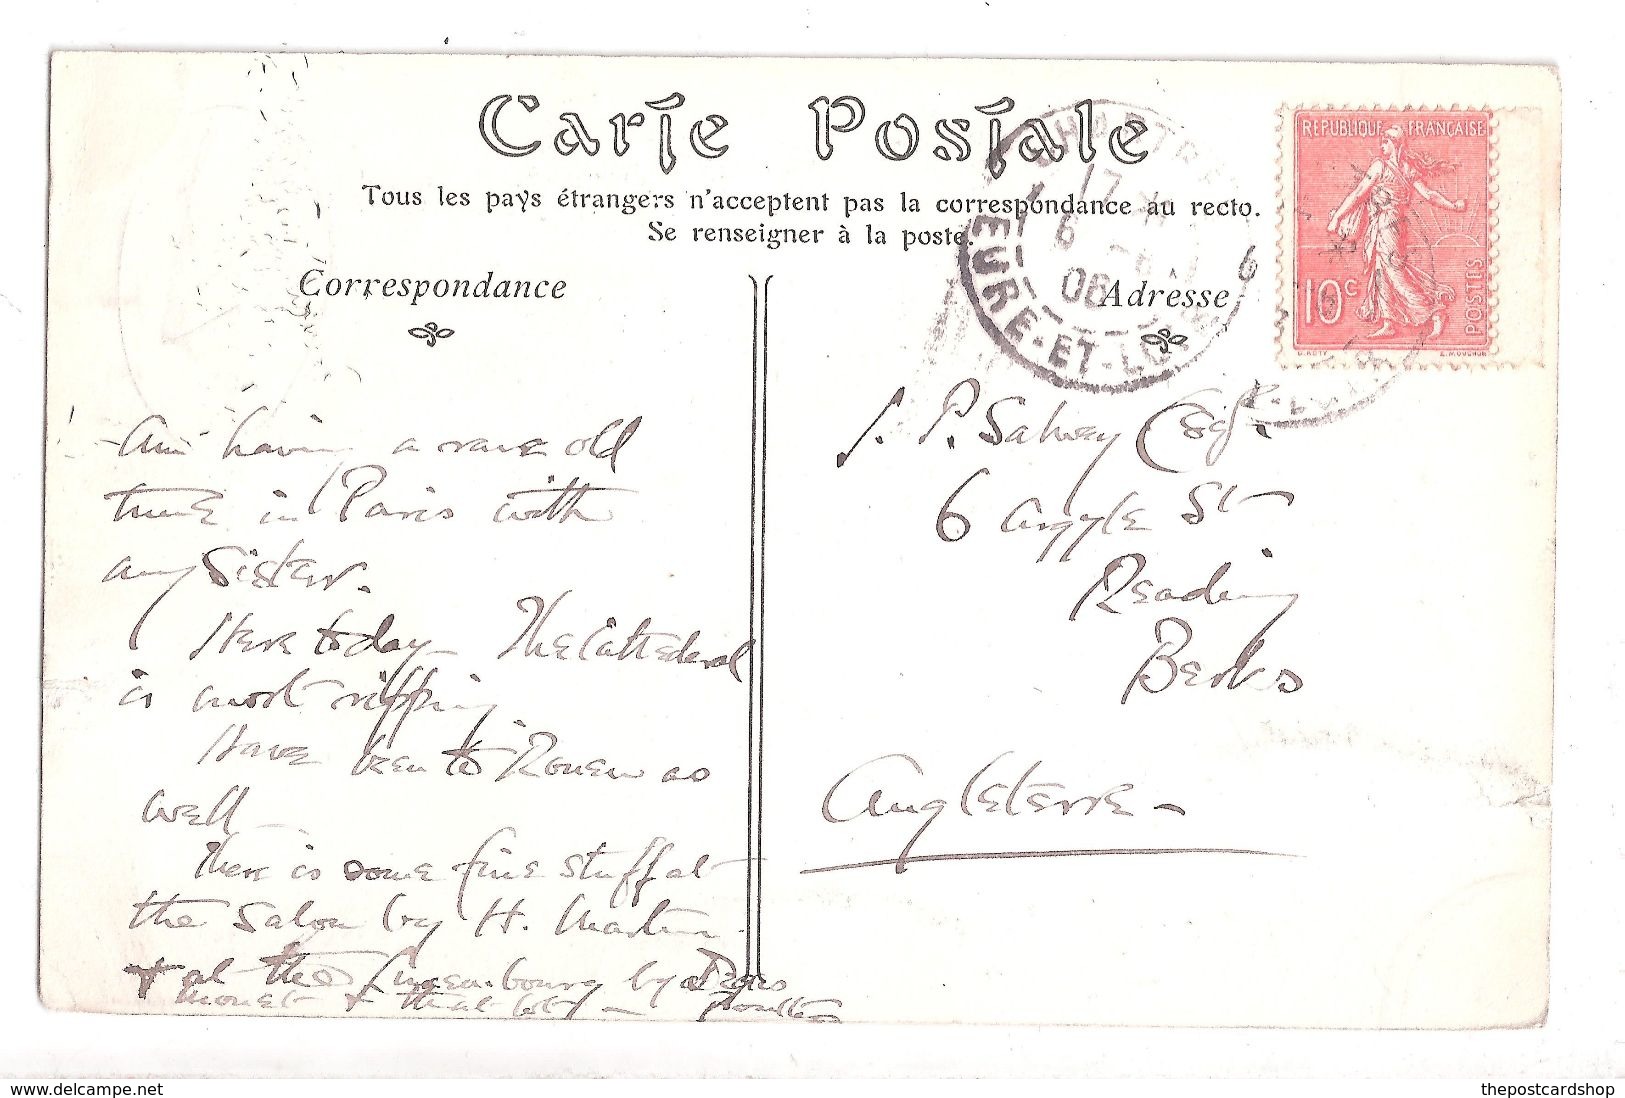 Carte Postale
Tous les pays étrangers n'acceptent pas la correspondance au recto.
Se renseigner à la poste.
Correspondance
Adresse
REPUBLIQUE FRANÇAISE
10c
POSTES
O. ROTY
E. MOUCHON
CHARTRES
17
6 - 6
06
EURE-ET-LOIR
6
Am having a rare old
time in Paris with
my Sister.
Here to day - The Cathedral
is most ripping
Have been to Rouen as
well
There is some fine stuff at
the Salon by H. Martin
& at the Luxembourg by Degas
Monet & that lot -
J. P. Salwey Esqr.
6 Argyle St
Reading
Berks
Angleterre -
delcampe.net
thepostcardshop